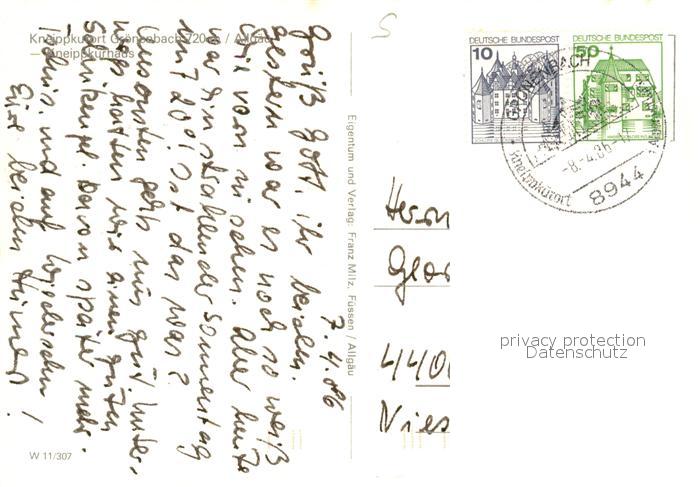 Kneippkurort Grönenbach 720 m / Allgäu
— Kneippkurhaus
7.4.86
Grüß Gott, ihr beiden.
gestern war es noch so weiß
wie vorn zu sehen. aber heute
war ein strahlender Sonnentag
mit 20°. ist das was?
Ansonsten gehts uns gut. Unter-
wegs hatten wir einen guten
Schutzengel. Davon später mehr.
Tschüs. und auf Wiedersehn!
Eure beiden
W 11/307
Eigentum und Verlag: Franz Milz, Füssen / Allgäu
DEUTSCHE BUNDESPOST
10
DEUTSCHE BUNDESPOST
50
GRÖNENBACH
-8.-4.86-
Kneippkurort
8944
Herrn
Geor
440
Nies
privacy protection
Datenschutz